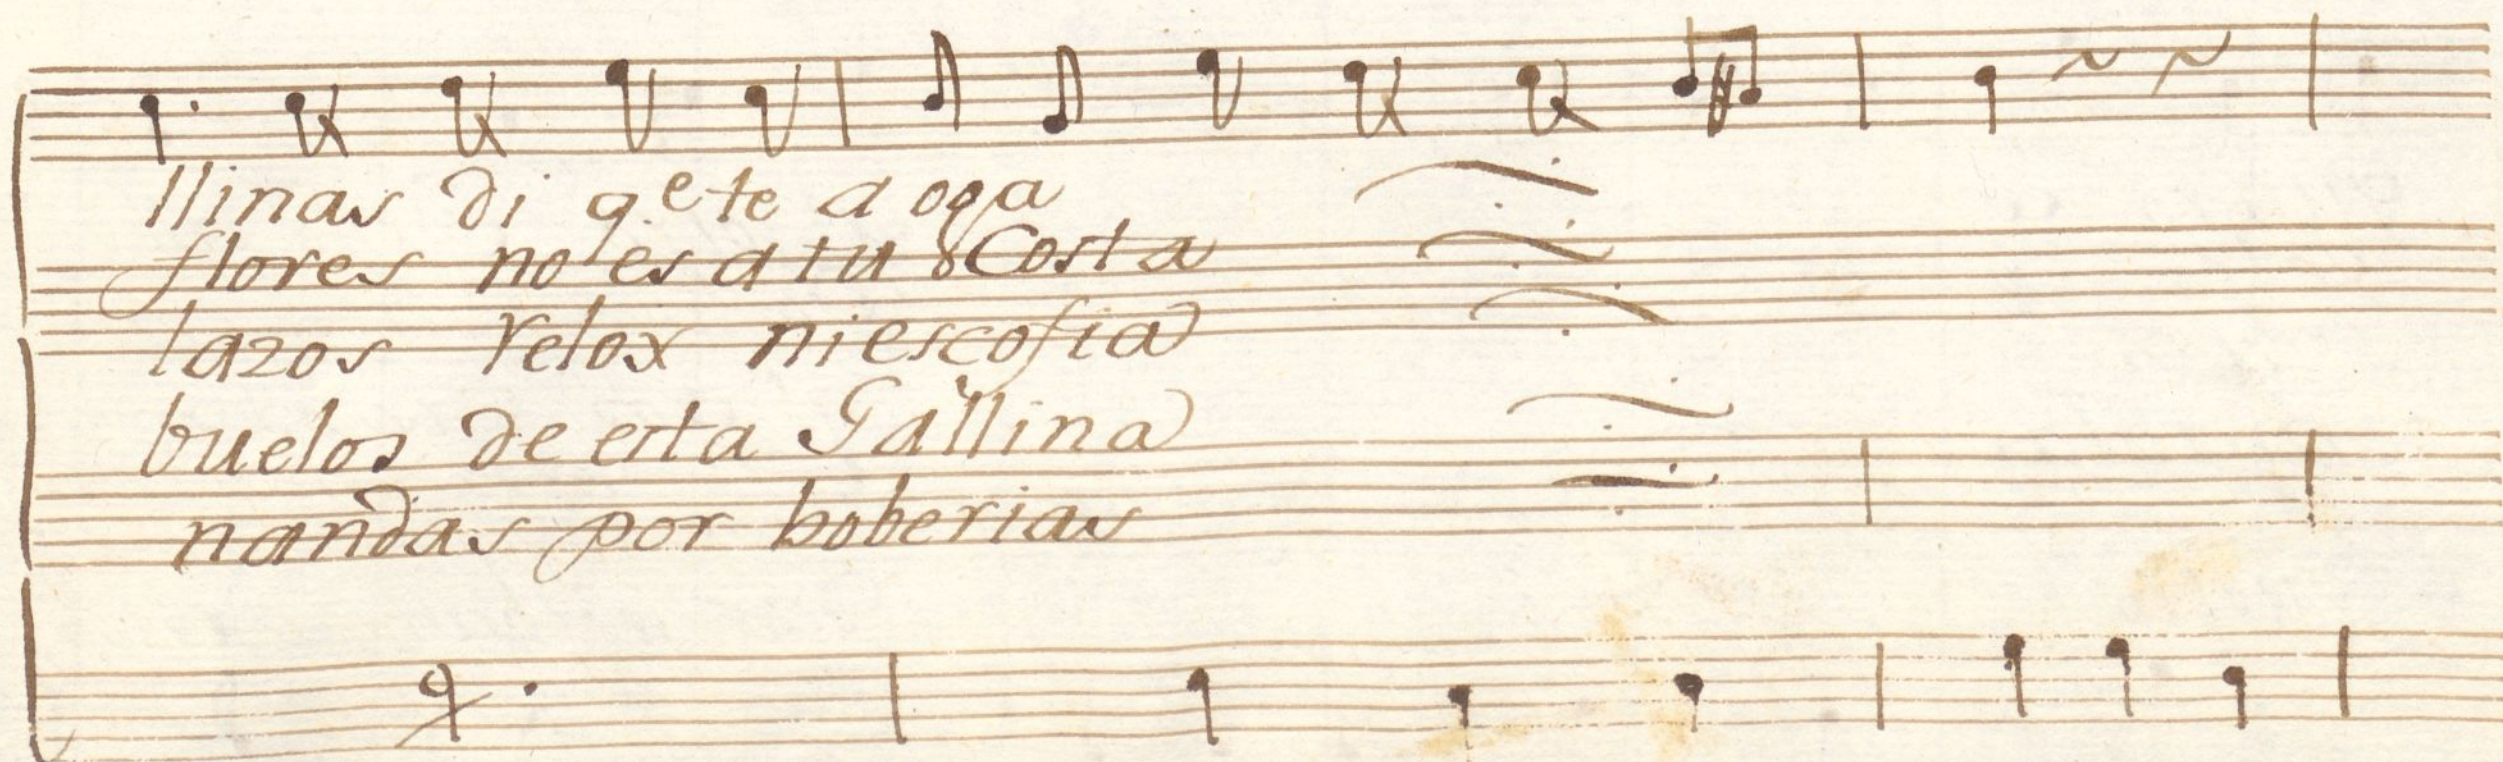 llinas di qe te aoga
flores no es a tu Costa
lazos relox niescofia
buelos de esta Gallina
nandas por boberias